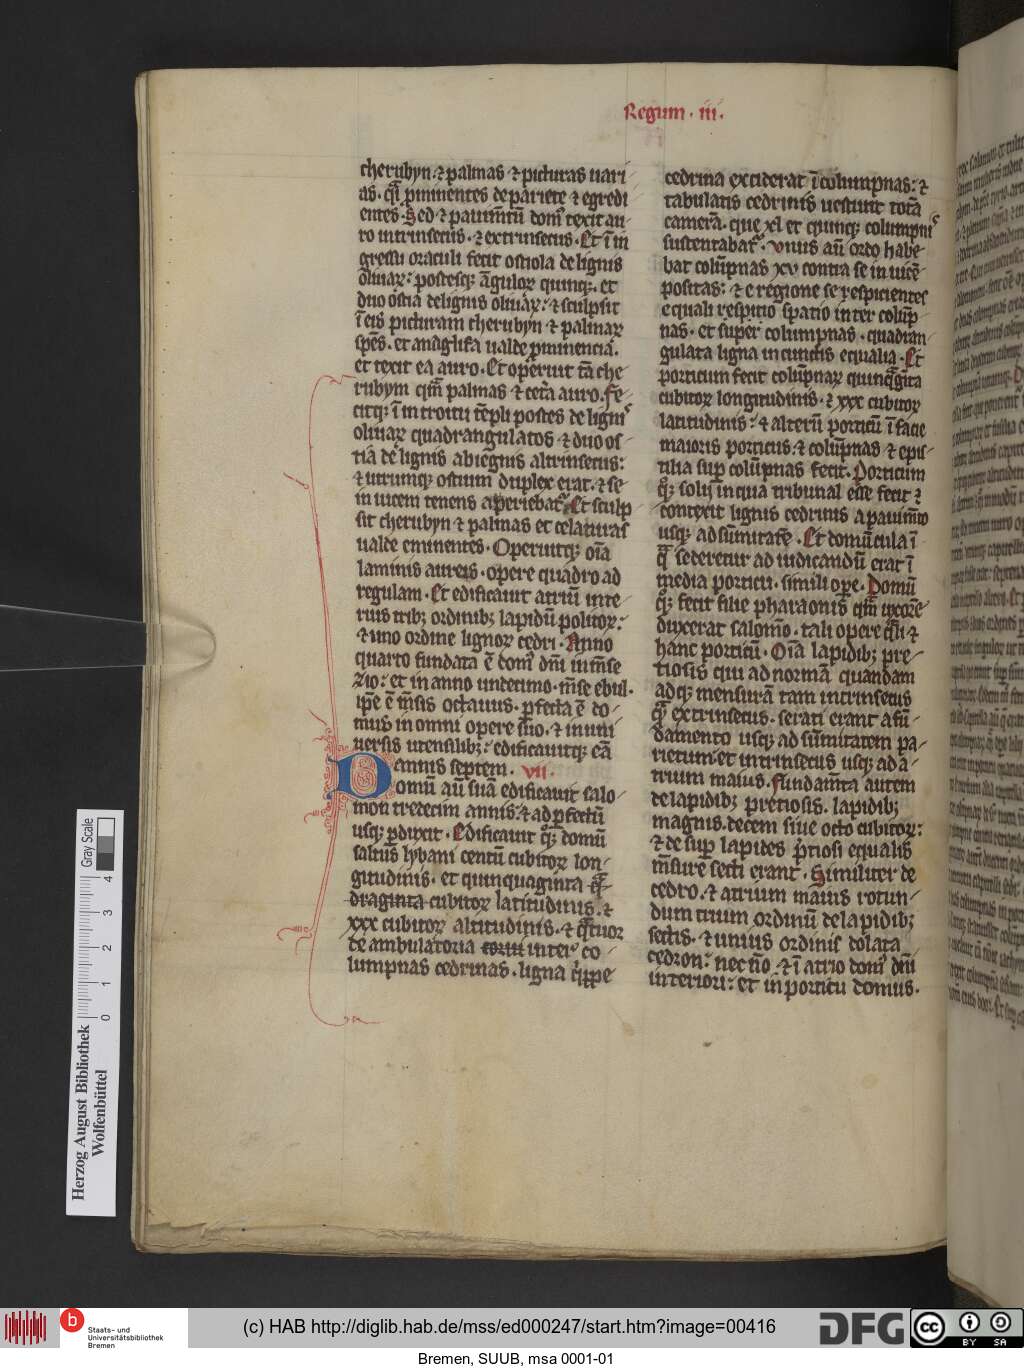 Regum · iii ·
cherubyn · ⁊ palmas ⁊ picturas uari-
as · qͣi ꝓminentes de pariete ⁊ egredi-
entes · Sed ⁊ pauimētū domꝰ texit au-
ro intrinsecus · ⁊ extrinsecus · Et ī in
gressu oraculi fecit ostiola de lignis
oliuaꝝ: postesqꝫ āguloꝝ quinqꝫ · et
duo ostia de lignis oliuaꝝ: ⁊ sculpsit
ī eis picturam cherubyn ⁊ palmaꝝ
spēs · et anaglifa ualde ꝓminencia ·
et texit ea auro · Et oꝑeruit tā che-
rubym qͣm palmas ⁊ cetͣa auro · Fe-
citqꝫ: ī introitu tēpli postes de lignꝰ
oliuaꝝ quadrangulatos ⁊ duo os-
tia de lignis abiegnis altrinsecus:
⁊ utrumqꝫ ostium duplex erat · ⁊ se
in uicem tenens aperiebatᷣ · Et sculp-
sit cherubyn ⁊ palmas et celaturas
ualde eminentes · Operuitqꝫ oīa
laminis aureis · opere quadro ad
regulam · Et edificauit atriū inte-
rius tribꝫ ordinibꝫ lapidū politoꝝ:
⁊ uno ordine lignoꝝ cedri · Anno
quarto fundata ē domꝰ dn̄i in m̄se
zio: et in anno undecimo · m̄se ebul ·
ip̄e ē m̄sis octauus · ꝑfecta ē do-
mus in omni opere suo · ⁊ in uni-
uersis utensilibꝫ: edificauitqꝫ eā
annis septem · vii ·
Domū aū suā edificauit salo-
mon tredecim annis: ⁊ ad ꝑfectū
usqꝫ ꝑduxit · Edificauit qͦqꝫ domū
saltus lybani centū cubitoꝝ lon-
gitudinis · et quinquaginta qͣ-
draginta cubitoꝝ latitudinis · ⁊
xxx cubitoꝝ altitudinis · ⁊ qͣtuor
de ambulatoria inter co-
lumpnas cedrinas · ligna qͥppe
cedrina exciderat ī columpnas: ⁊
tabulatis cedrinis uestiuit totā
camerā · que xl et quinqꝫ columpnꝰ
sustentabatᷣ · Vnus aū ordo habe-
bat colūpnas xv contra se in uicē
positas: ⁊ e regione se respicientes
equali respitio spatio inter colūp-
nas · et super columpnas · quadran-
gulata ligna in cunctis equalia · Et
porticum fecit colūpnaꝝ quinqͣgīta
cubitoꝝ longitudinis · ⁊ xxx cubitoꝝ
latitudinis: ⁊ alterū porticū ī facie
maioris porticus: ⁊ colūpnas ⁊ epis-
tilia suꝑ colūpnas fecit · Porticum
qͦqꝫ solij in qua tribunal esse fecit ⁊
contexit lignis cedrinis a pauimēto
usqꝫ ad sūmitatē · Et domūcula ī
qͣ sederetur ad iudicandū erat ī
media porticu · simili oꝑe · Domū
qͦqꝫ fecit filie pharaonis qͣm uxorē
duxerat salomō · tali opere qͣli ⁊
hanc porticū · Oīa lapidibꝫ pre-
tiosis qui ad normā quandam
adqꝫ mensurā tam intrinsecus
qͣ extrinsecus · serati erant a fū-
damento usqꝫ ad sūmitatem pa-
rietum et intrinsecus usqꝫ ad a-
trium maius · fundamīta autem
de lapidibꝫ pretiosis · lapidibꝫ
magnis · decem siue octo cubitoꝝ:
⁊ de suꝑ lapides ꝓtiosi equalis
m̄sure secti erant · Similiter de
cedro · ⁊ atrium maius rotun-
dum trium ordinū de lapidibꝫ
sectis · ⁊ unius ordinis dolata
cedron: nec nō · ⁊ ī atrio domꝰ dn̄i
interiori: et in porticu domus ·
Herzog August Bibliothek
Wolfenbüttel
Gray Scale
0 1 2 3 4
b
Staats- und
Universitätsbibliothek
Bremen
(c) HAB http://diglib.hab.de/mss/ed000247/start.htm?image=00416
DFG
cc
BY SA
Bremen, SUUB, msa 0001-01